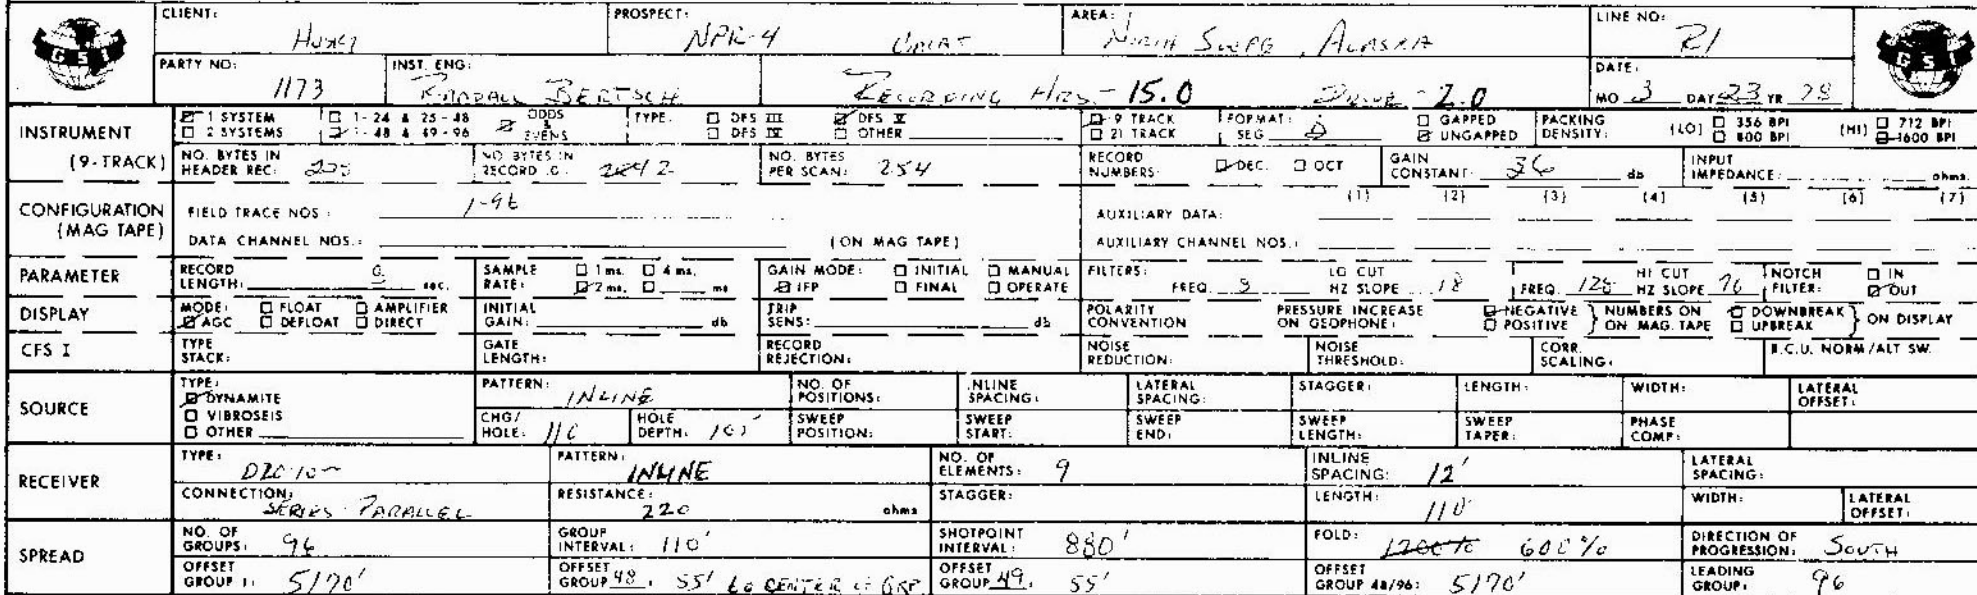 CLIENT: Husky PROSPECT: NPR-4 Umiat AREA: North Slope, Alaska LINE NO: R1
GSI
PARTY NO: 1173 INST. ENG: Randall Bertsch Recording Hrs - 15.0 Drive - 2.0 DATE: MO 3 DAY 23 YR 78
GSI
INSTRUMENT (9-TRACK) 1 SYSTEM 1-24 & 25-48 ODDS & EVENS TYPE: DFS III DFS V 9 TRACK FORMAT: GAPPED PACKING DENSITY: (LO) 356 BPI (HI) 712 BPI
2 SYSTEMS 1-48 & 49-96 DFS IV OTHER 21 TRACK SEG UNGAPPED 800 BPI 1600 BPI
NO. BYTES IN HEADER REC: NO BYTES IN RECORD NO. BYTES PER SCAN: 254 RECORD NUMBERS: DEC. OCT GAIN CONSTANT: 36 db INPUT IMPEDANCE: ohms.
CONFIGURATION (MAG TAPE) FIELD TRACE NOS: 1-96 AUXILIARY DATA: (1) (2) (3) (4) (5) (6) (7)
DATA CHANNEL NOS.: (ON MAG TAPE) AUXILIARY CHANNEL NOS.:
PARAMETER RECORD LENGTH: sec. SAMPLE RATE: 1 ms. 4 ms. 2 ms. ms GAIN MODE: INITIAL MANUAL IFP FINAL OPERATE FILTERS: FREQ. LO CUT HZ SLOPE 18 FREQ. 128 HI CUT HZ SLOPE NOTCH FILTER: IN OUT
DISPLAY MODE: FLOAT AMPLIFIER AGC DEFLOAT DIRECT INITIAL GAIN: db TRIP SENS: db POLARITY CONVENTION PRESSURE INCREASE ON GEOPHONE: NEGATIVE POSITIVE NUMBERS ON MAG. TAPE DOWNBREAK UPBREAK ON DISPLAY
CFS I TYPE STACK: GATE LENGTH: RECORD REJECTION: NOISE REDUCTION: NOISE THRESHOLD: CORR. SCALING: R.C.U. NORM/ALT SW.
SOURCE TYPE: DYNAMITE VIBROSEIS OTHER PATTERN: INLINE NO. OF POSITIONS: INLINE SPACING: LATERAL SPACING: STAGGER: LENGTH: WIDTH: LATERAL OFFSET:
CHG/HOLE: HOLE DEPTH: SWEEP POSITION: SWEEP START: SWEEP END: SWEEP LENGTH: SWEEP TAPER: PHASE COMP:
RECEIVER TYPE: PATTERN: INLINE NO. OF ELEMENTS: 9 INLINE SPACING: 12' LATERAL SPACING:
CONNECTION: SERIES PARALLEL RESISTANCE: 220 ohms STAGGER: LENGTH: 110' WIDTH: LATERAL OFFSET:
SPREAD NO. OF GROUPS: 96 GROUP INTERVAL: 110' SHOTPOINT INTERVAL: 880' FOLD: 1200% 600% DIRECTION OF PROGRESSION: SOUTH
OFFSET GROUP 1: 5170' OFFSET GROUP 48: 55' to CENTER of GRP OFFSET GROUP 49: 55' OFFSET GROUP 48/96: 5170' LEADING GROUP: 96